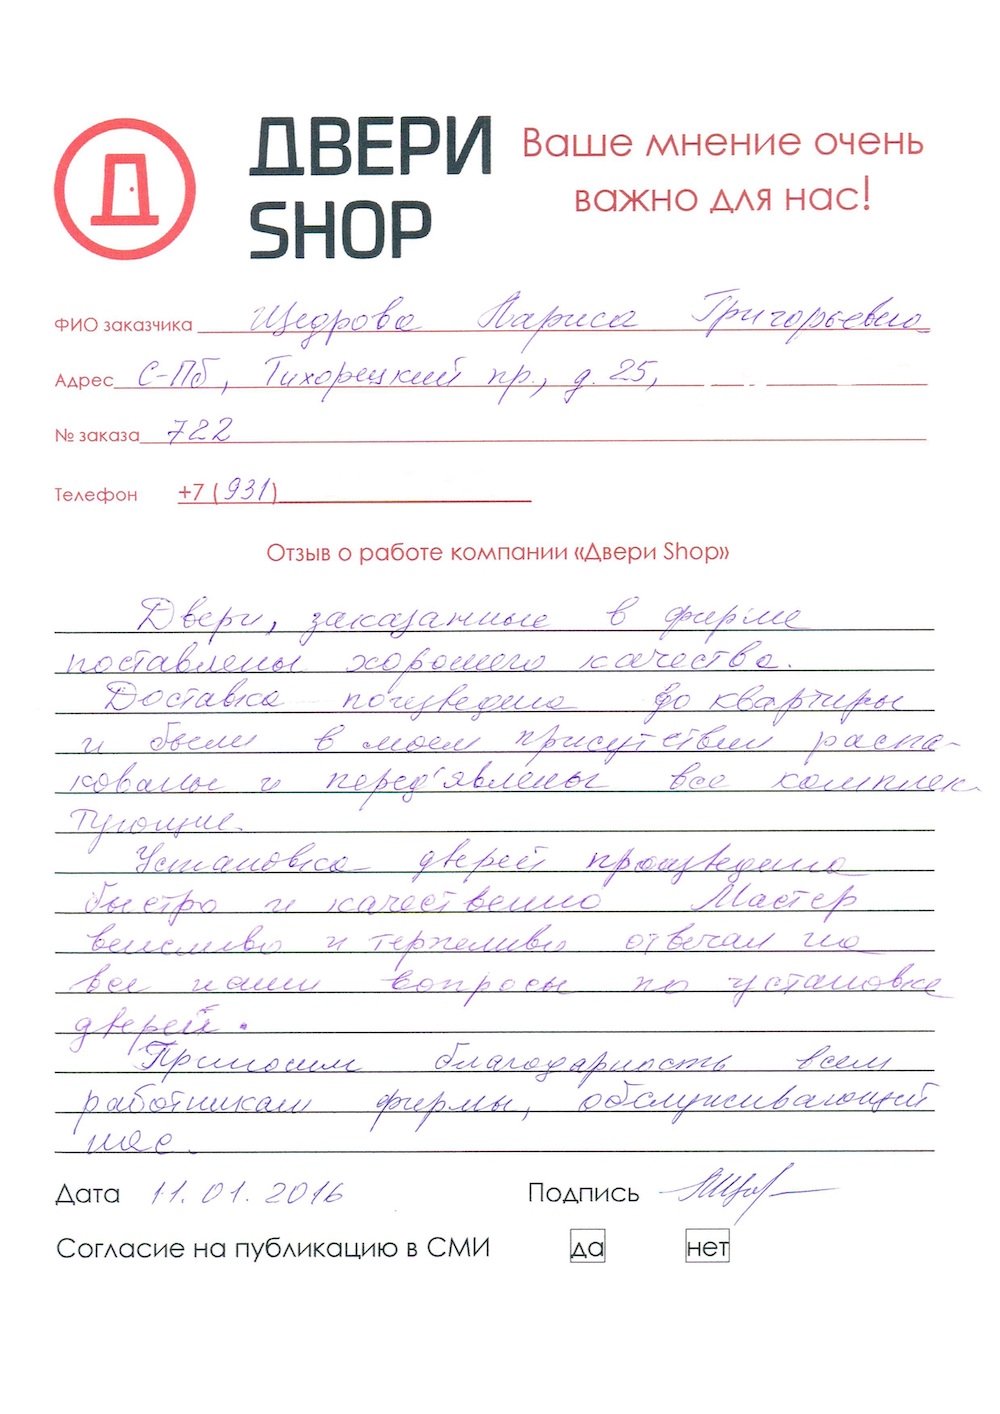 Д
ДВЕРИ
SHOP
Ваше мнение очень
важно для нас!
ФИО заказчика Щедрова Лариса Григорьевна
Адрес С-Пб, Тихорецкий пр., д. 25,
№ заказа 722
Телефон +7 (931)
Отзыв о работе компании «Двери Shop»
Двери, заказанные в фирме
поставлены хорошего качества.
Доставка произведена до квартиры
и были в моем присутствии распа-
кованы и перед'явлены все комплек-
тующие.
Установка дверей произведена
быстро и качественно Мастер
вежливо и терпеливо отвечал на
все наши вопросы по установке
дверей.
Приносим благодарность всем
работникам фирмы, обслуживающей
нас.
Дата 11.01.2016 Подпись
Согласие на публикацию в СМИ да нет